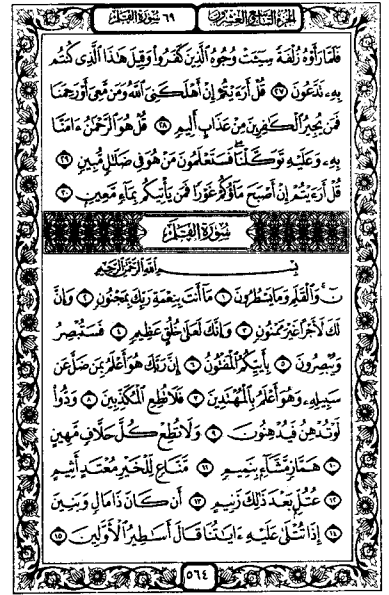 الجزء التاسع والعشرون ٦٩ سورة القلم
فَلَمَّا رَأَوْهُ زُلْفَةً سِيٓـَٔتْ وُجُوهُ ٱلَّذِينَ كَفَرُوا۟ وَقِيلَ هَٰذَا ٱلَّذِى كُنتُم
بِهِۦ تَدَّعُونَ ٢٧ قُلْ أَرَءَيْتُمْ إِنْ أَهْلَكَنِىَ ٱللَّهُ وَمَن مَّعِىَ أَوْ رَحِمَنَا
فَمَن يُجِيرُ ٱلْكَٰفِرِينَ مِنْ عَذَابٍ أَلِيمٍ ٢٨ قُلْ هُوَ ٱلرَّحْمَٰنُ ءَامَنَّا
بِهِۦ وَعَلَيْهِ تَوَكَّلْنَا ۖ فَسَتَعْلَمُونَ مَنْ هُوَ فِى ضَلَٰلٍ مُّبِينٍ ٢٩
قُلْ أَرَءَيْتُمْ إِنْ أَصْبَحَ مَآؤُكُمْ غَوْرًا فَمَن يَأْتِيكُم بِمَآءٍ مَّعِينٍۭ ٣٠
سورة القلم
بِسْمِ ٱللَّهِ ٱلرَّحْمَٰنِ ٱلرَّحِيمِ
نٓ ۚ وَٱلْقَلَمِ وَمَا يَسْطُرُونَ ١ مَآ أَنتَ بِنِعْمَةِ رَبِّكَ بِمَجْنُونٍ ٢ وَإِنَّ
لَكَ لَأَجْرًا غَيْرَ مَمْنُونٍ ٣ وَإِنَّكَ لَعَلَىٰ خُلُقٍ عَظِيمٍ ٤ فَسَتُبْصِرُ
وَيُبْصِرُونَ ٥ بِأَييِّكُمُ ٱلْمَفْتُونُ ٦ إِنَّ رَبَّكَ هُوَ أَعْلَمُ بِمَن ضَلَّ عَن
سَبِيلِهِۦ وَهُوَ أَعْلَمُ بِٱلْمُهْتَدِينَ ٧ فَلَا تُطِعِ ٱلْمُكَذِّبِينَ ٨ وَدُّوا۟
لَوْ تُدْهِنُ فَيُدْهِنُونَ ٩ وَلَا تُطِعْ كُلَّ حَلَّافٍ مَّهِينٍ
١٠ هَمَّازٍ مَّشَّآءٍۭ بِنَمِيمٍ ١١ مَّنَّاعٍ لِّلْخَيْرِ مُعْتَدٍ أَثِيمٍ
١٢ عُتُلٍّۭ بَعْدَ ذَٰلِكَ زَنِيمٍ ١٣ أَن كَانَ ذَا مَالٍ وَبَنِينَ
١٤ إِذَا تُتْلَىٰ عَلَيْهِ ءَايَٰتُنَا قَالَ أَسَٰطِيرُ ٱلْأَوَّلِينَ ١٥
٥٦٤